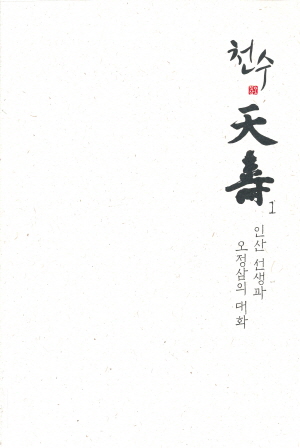 천수
天壽
1
인산 선생과
오정삼의 대화